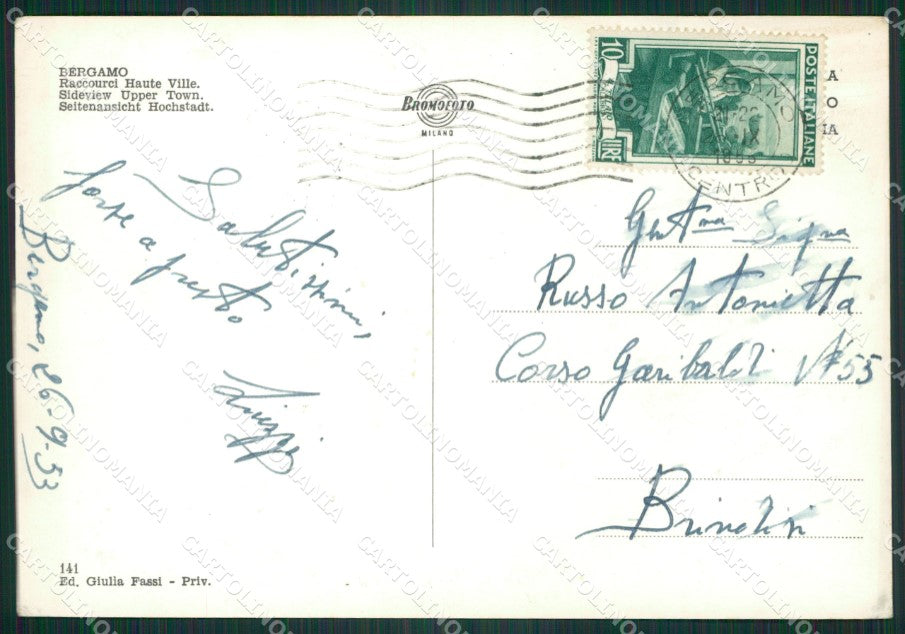 BERGAMO
Raccourci Haute Ville.
Sideview Upper Town.
Seitenansicht Hochstadt.
BROMOFOTO
MILANO
10
LIRE
POSTE ITALIANE
CENTRO
A
O
IA
Salutissimi,
forse a presto
Bergamo, 26-9-53
Gent.ma Sig.na
Russo Antonietta
Corso Garibaldi N° 55
Brindisi
141
Ed. Giulia Fassi - Priv.
CARTOLINOMANIA